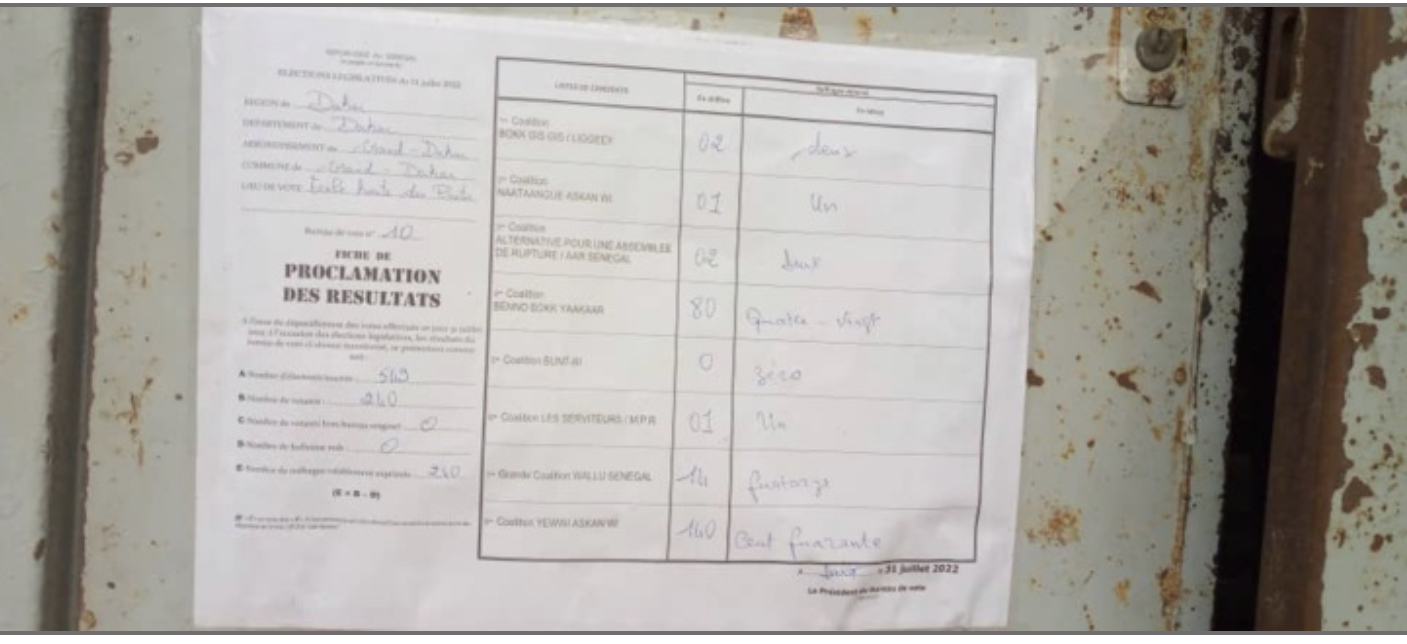 REPUBLIQUE du SENEGAL
ELECTIONS LEGISLATIVES du 31 juillet 2022
REGION de Dakar
DEPARTEMENT de Dakar
ARRONDISSEMENT de Grand-Dakar
COMMUNE de Grand-Dakar
LIEU DE VOTE Ecole
Bureau de vote n° 10
FICHE DE
PROCLAMATION
DES RESULTATS
A l'issue du dépouillement des votes effectués ce jour 31 juillet
2022 à l'occasion des élections législatives, les résultats du
bureau de vote ci-dessus mentionné, se présentent comme
suit :
A Nombre d'électeurs inscrits 549
B Nombre de votants 240
C Nombre de votants hors bureau originel 0
D Nombre de bulletins nuls 0
E Nombre de suffrages valablement exprimés 240
(E = B - D)
LISTES DE CANDIDATS
Suffrages obtenus
En chiffres
En lettres
Coalition
BOKK GIS GIS / LIGGEEY
02
deux
Coalition
NAATAANGUE ASKAN WI
01
Un
Coalition
ALTERNATIVE POUR UNE ASSEMBLEE
DE RUPTURE / AAR SENEGAL
02
deux
Coalition
BENNO BOKK YAAKAAR
80
Quatre-vingt
Coalition BUNT-BI
0
zéro
Coalition LES SERVITEURS / M.P.R
01
Un
Grande Coalition WALLU SENEGAL
14
Coalition YEWWI ASKAN WI
140
Cent quarante
31 juillet 2022
Le Président du Bureau de vote